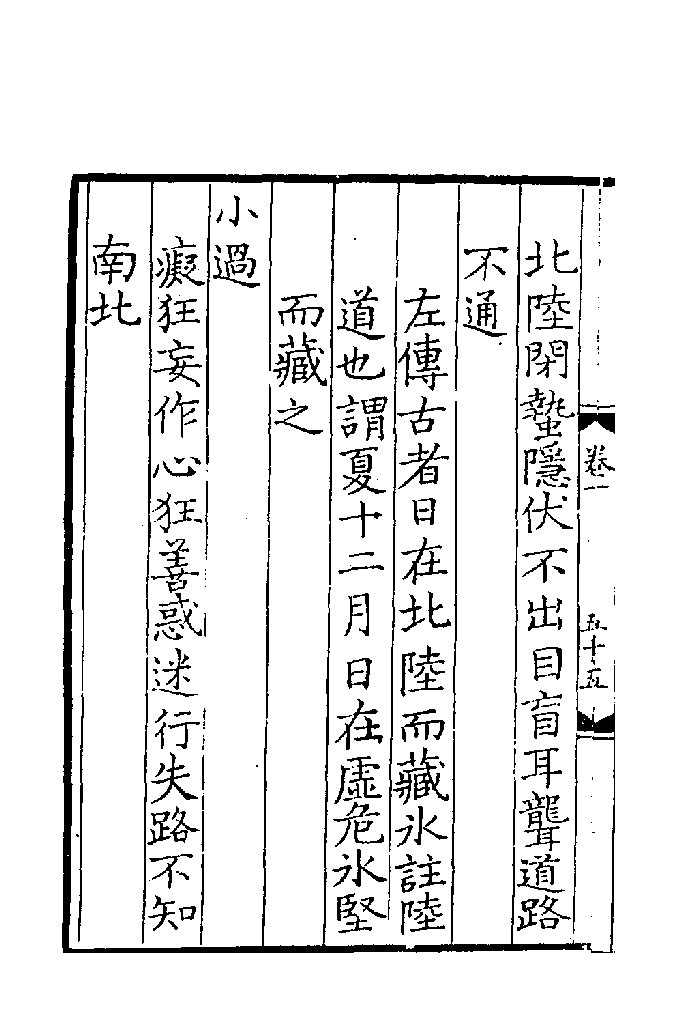 卷一
五十五
北陸閉蟄隱伏不出目盲耳聾道路
不通
左傳古者日在北陸而藏氷註陸
道也謂夏十二月日在虛危氷堅
而藏之
小過
癡狂妄作心狂善惑迷行失路不知
南北